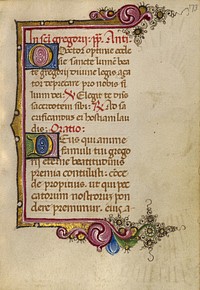 In scī gregorij: pp̄. Anti:
Doctor optime eccle
sie sancte lumē bea
te gregori diuine legis aⱥ
tor deprecare pro nobis fi
lium dei: Elegit te dn̄s
sacerdotem sibi: Ad sa
crificandū ei hostiam lau
dis: Oratio:
Deus qui anime
famuli tui grego
rij eterne beatitudinis
premia contulisti: cōce
de propitius. ut qui pec
catorum nostrorū pon
dere premimur. eius a